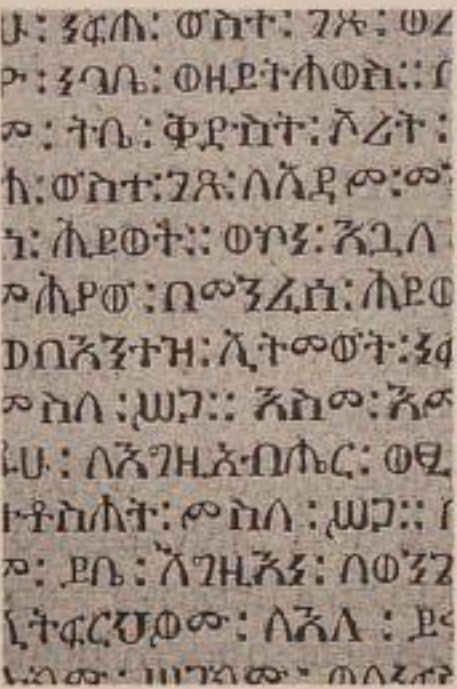 ነፍሐ፡ ውስተ፡ ገጹ፡
ነባቤ፡ ወዘይትሐወስ።
ትቤ፡ ቅድስት፡ ኦሪት፡
ሐ፡ውስተ፡ገጹ፡ለአዳም፡
ነ፡ ሕይወት። ወኮነ፡ እጓለ
ማሕየዊ፡በመንፈሰ፡ሕይወ
ወበእንተዝ፡ኢትመውት፡ነፍ
ምስለ፡ሥጋ። እስመ፡እም
ሁ፡ ለእግዚአብሔር፡ ወፂ
ተቶስሐት፡ ምስለ፡ሥጋ።
ይቤ፡ እግዚእነ፡ በወንገ
ኢትፍርህዎሙ፡ ለእለ፡ ይቀ